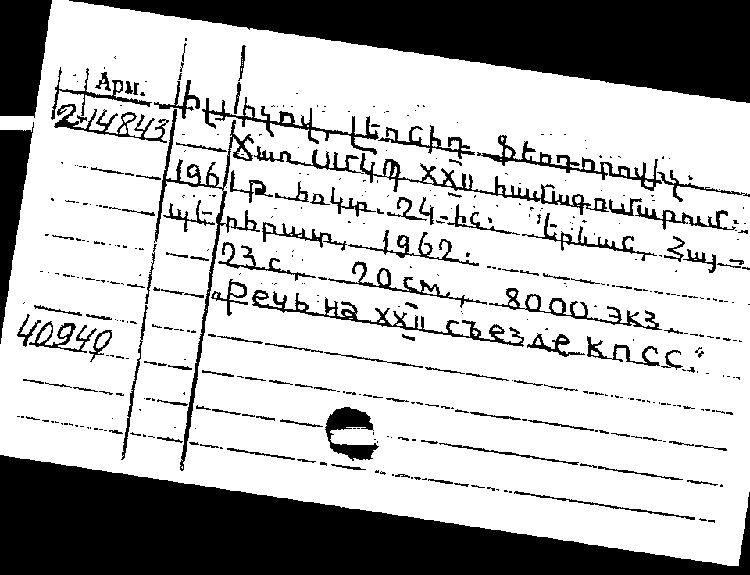 Арм.
2-14843
Իլյիչով, Լեոնիդ Ֆեոդորովիչ.
Ճառ ՍՄԿՊ XXII համագումարում.
1961 թ. հոկտ. 24-ին: Երևան, Հայ-
պետհրատ, 1962.
23 с., 20 см., 8000 экз.
„Речь на XXII съезде КПСС."
40940